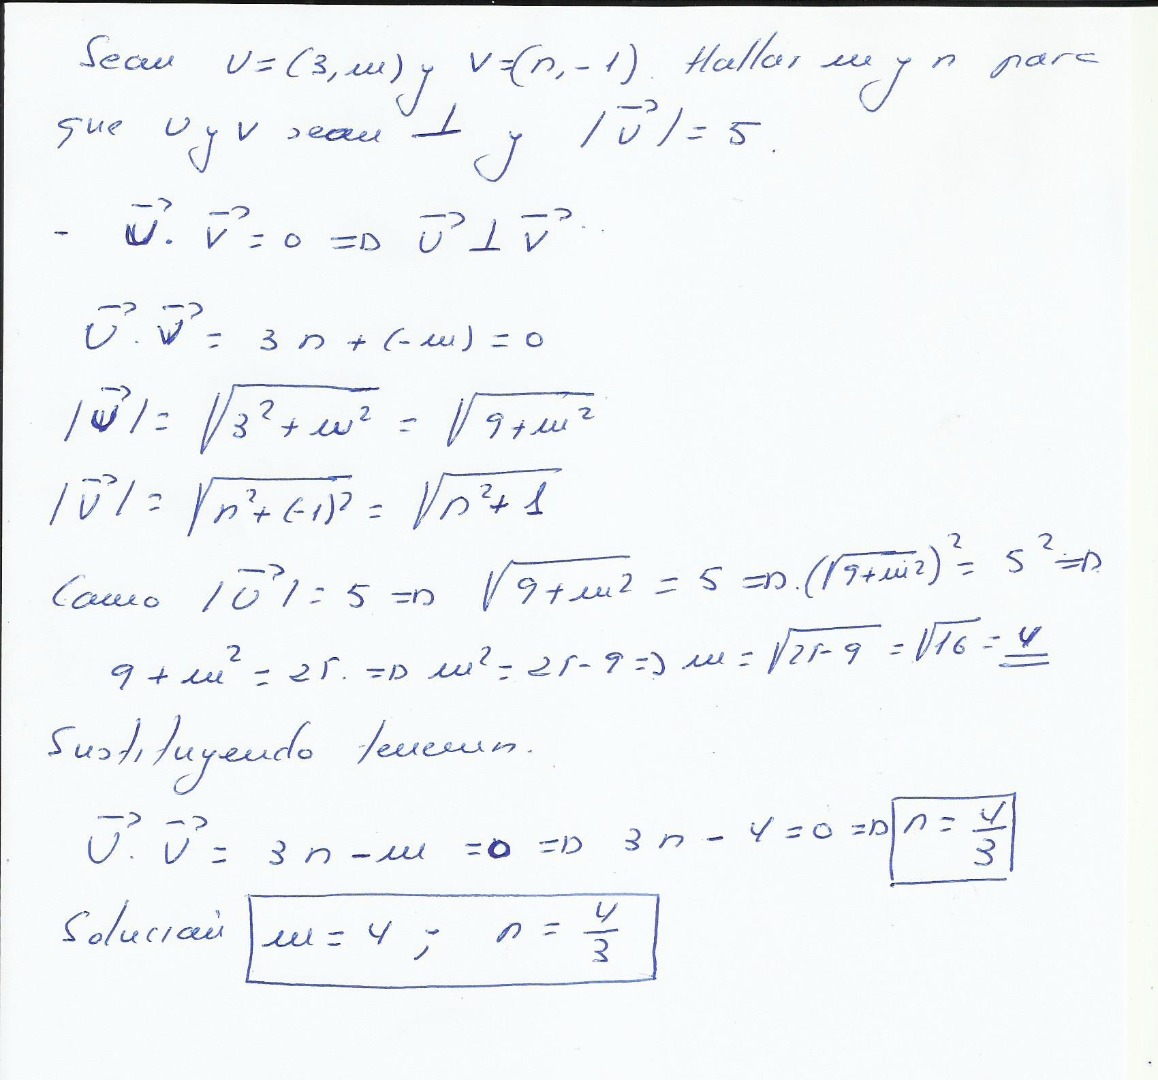 Sean U=(3,m) y V=(n,-1). Hallar m y n para
que U y V sean ⊥ y |U⃗|= 5.
- U⃗. V⃗ = 0 => U⃗ ⊥ V⃗
U⃗. V⃗ = 3n + (-m) = 0
|U⃗| = √(3²+m²) = √(9+m²)
|V⃗| = √(n²+(-1)²) = √(n²+1)
Como |U⃗| = 5 => √(9+m²) = 5 => (√(9+m²))² = 5² =>
9 + m² = 25. => m² = 25-9 => m = √(25-9) = √16 = 4
Sustituyendo tenemos.
U⃗. V⃗ = 3n - m = 0 => 3n - 4 = 0 => n = 4/3
Solución m = 4 ; n = 4/3